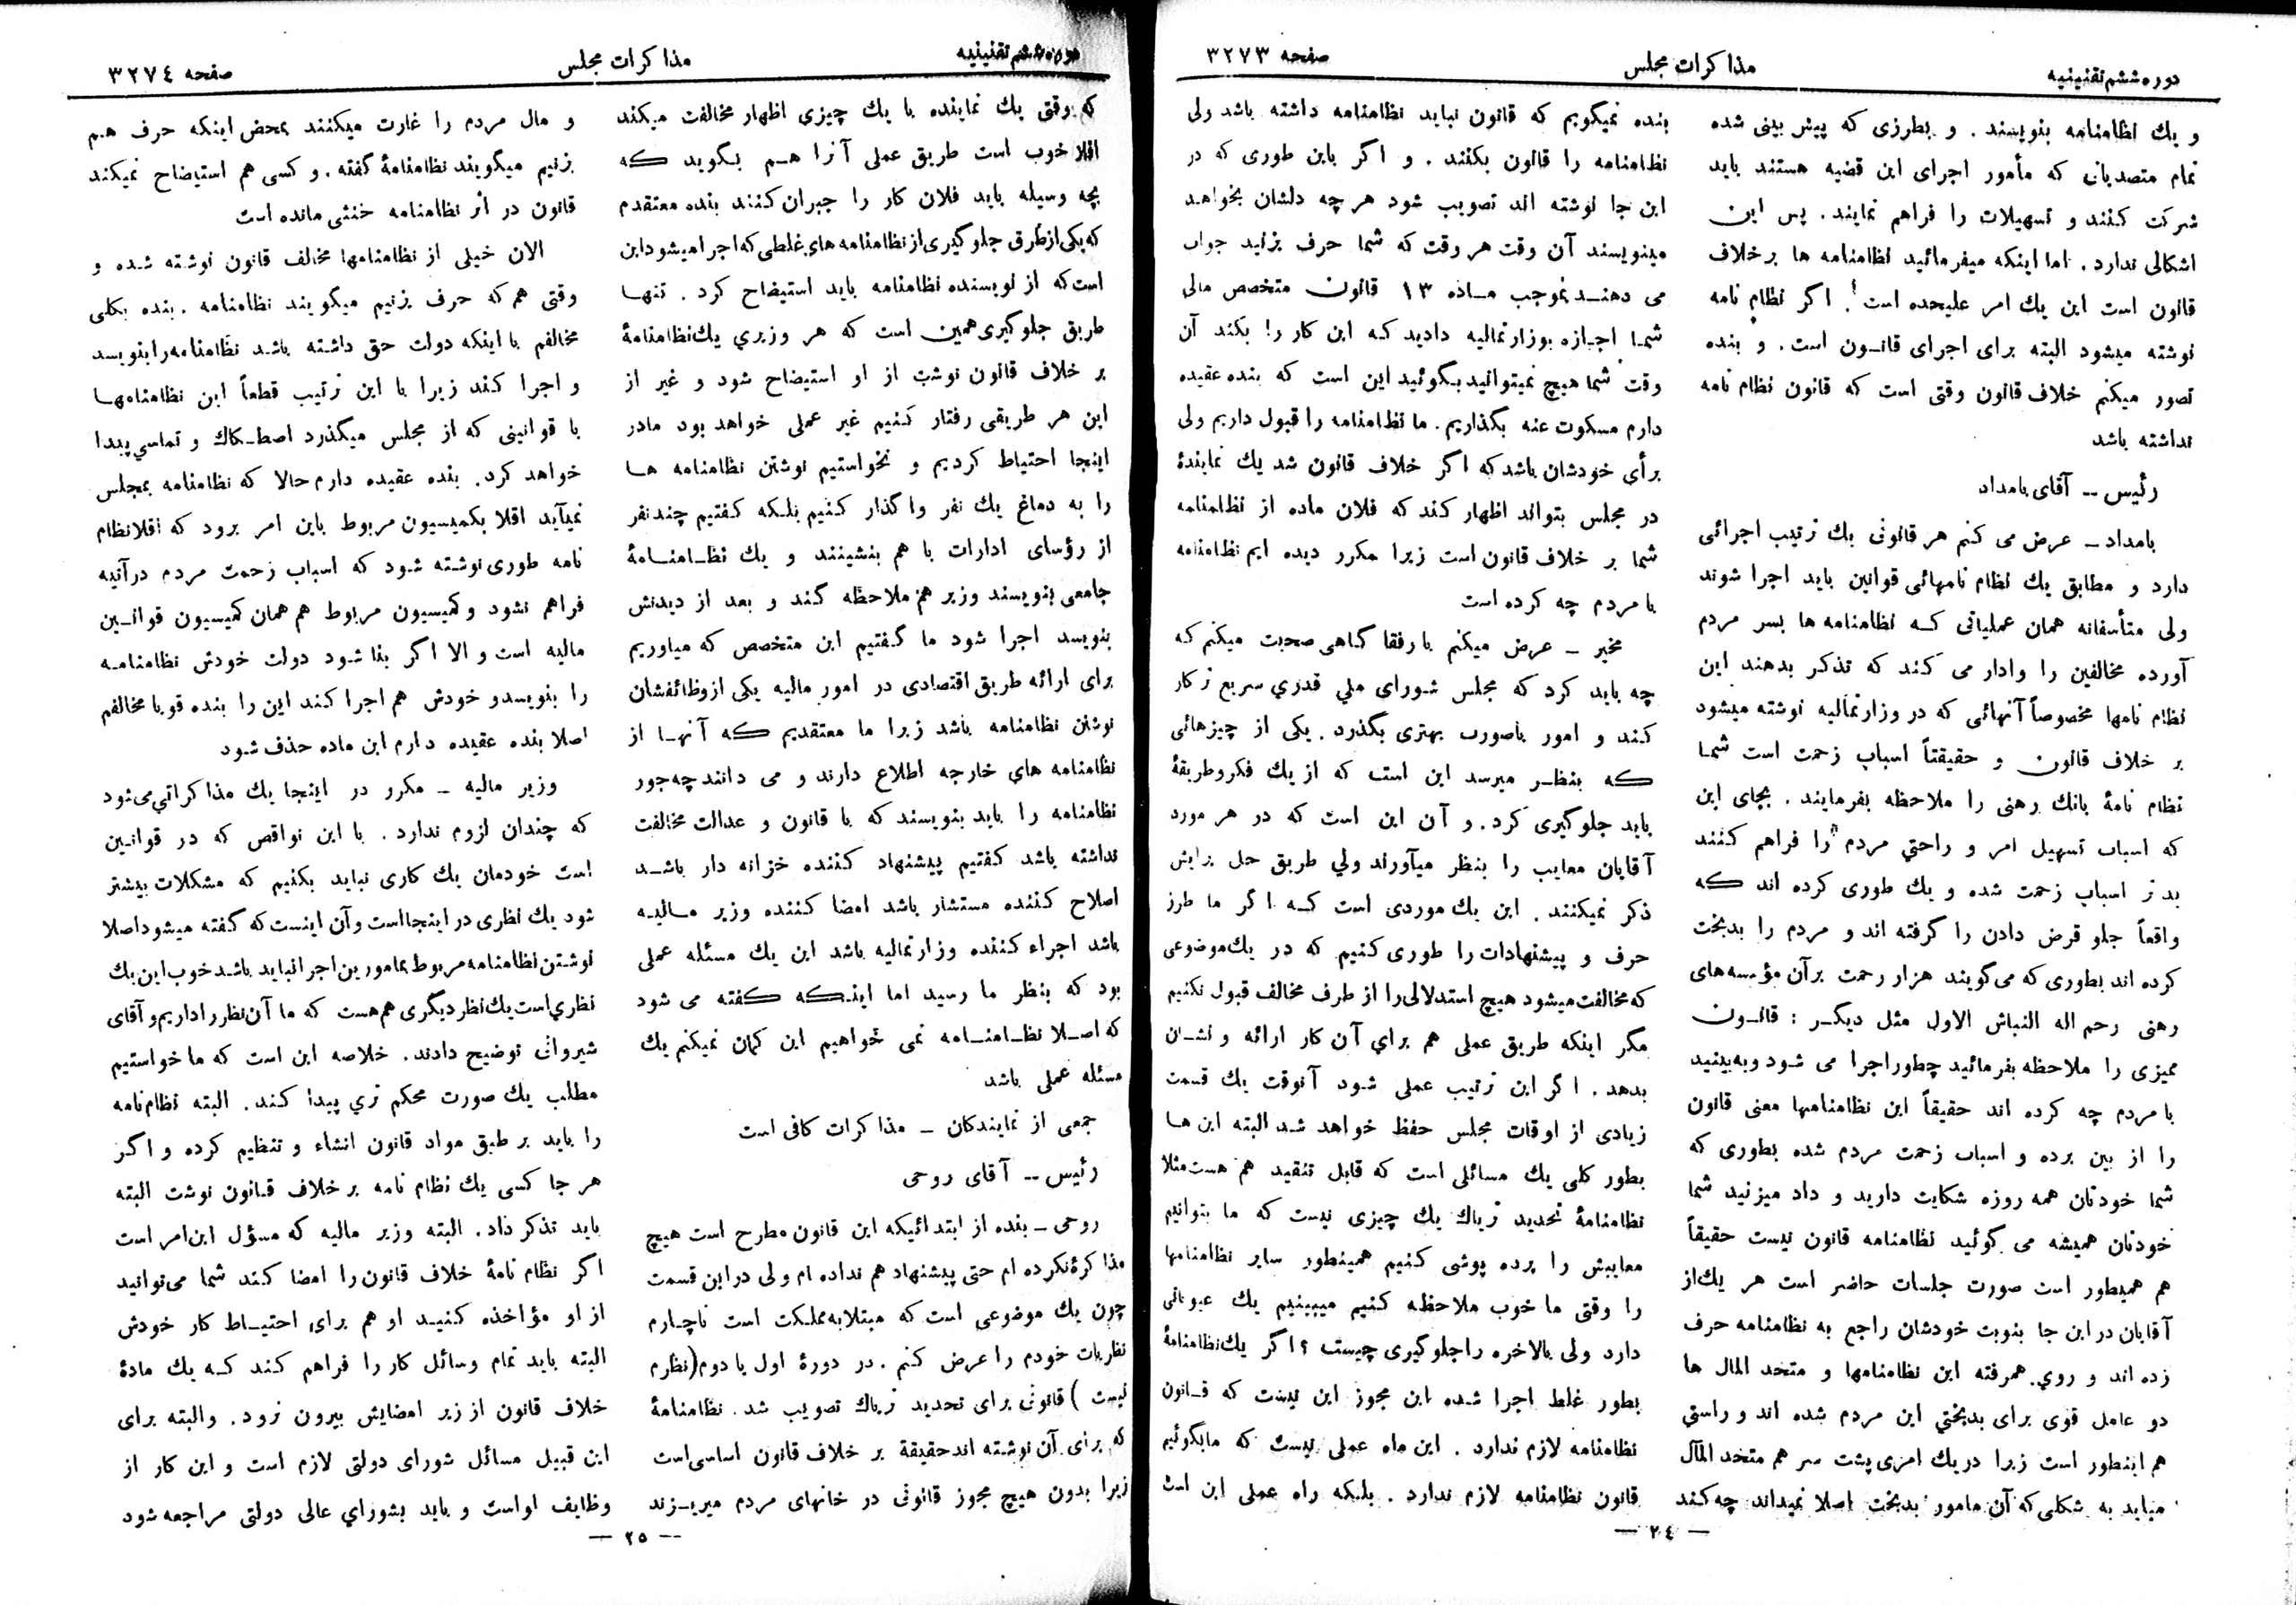 دوره ششم تقنینیه
مذاکرات مجلس
صفحه ۳۲۷۳
و یك نظامنامه بنویسند . و بطرزی که پیش بینی شده
تمام متصدیانی که مأمور اجرای این قضیه هستند باید
شرکت کنند و تسهیلات را فراهم نمایند . پس این
اشکالی ندارد . اما اینکه میفرمائید نظامنامه ها برخلاف
قانون است این یك امر علیحده است ! . اگر نظام نامه
نوشته میشود البته برای اجرای قانون است . و بنده
تصور میکنم خلاف قانون وقتی است که قانون نظام نامه
نداشته باشد
رئیس -- آقای بامداد
بامداد - عرض می کنم هر قانونی یك ترتیب اجرائی
دارد و مطابق یك نظام نامهائی قوانین باید اجرا شوند
ولی متأسفانه همان عملیاتی که نظامنامه ها بسر مردم
آورده مخالفین را وادار می کند که تذکر بدهند این
نظام نامها مخصوصاً آنهائی که در وزارتمالیه نوشته میشود
بر خلاف قانون و حقیقتاً اسباب زحمت است شما
نظام نامهٔ بانك رهنی را ملاحظه بفرمایند . بجای این
که اسباب تسهیل امر و راحتي مردم را فراهم کنند
بد تر اسباب زحمت شده و یك طوری کرده اند که
واقعاً جلو قرض دادن را گرفته اند و مردم را بدبخت
کرده اند بطوری که می گویند هزار رحمت بر آن مؤسسه های
رهنی رحم اله النباش الاول مثل دیگر : قانون
ممیزی را ملاحظه بفرمائید چطور اجرا می شود و به بینید
با مردم چه کرده اند حقیقاً این نظامنامها معنی قانون
را از بین برده و اسباب زحمت مردم شده بطوری که
شما خودتان همه روزه شکایت دارید و داد میزنید شما
خودتان همیشه می گوئید نظامنامه قانون نیست حقیقاً
هم همیطور است صورت جلسات حاضر است هر یك از
آقایان در این جا بنوبت خودشان راجع به نظامنامه حرف
زده اند و روي همرفته این نظامنامها و متحد المال ها
دو عامل قوی برای بدبختي این مردم شده اند و راستي
هم اینطور است زیرا در یك امری پشت سر هم متحد المآل
میاید به شکلی که آن مامور بدبخت اصلا نمیداند چه کند
بنده نمیگویم که قانون نباید نظامنامه داشته باشد ولی
نظامنامه را قانون بکنند . و اگر باین طوری که در
این جا نوشته اند تصویب شود هر چه دلشان بخواهد
مینویسند آن وقت هر وقت که شما حرف بزنید جواب
می دهند بموجب ماده ۱۳ قانون متخصص مالی
شما اجازه بوزارتمالیه دادید که این کار را بکند آن
وقت شما هیچ نمیتوانید بگوئید این است که بنده عقیده
دارم مسکوت عنه بگذاریم . ما نظامنامه را قبول داریم ولی
برأی خودشان باشد که اگر خلاف قانون شد یك نمایندهٔ
در مجلس بتواند اظهار کند که فلان ماده از نظامنامه
شما بر خلاف قانون است زیرا مکرر دیده ایم نظامنامه
با مردم چه کرده است
مخبر - عرض میکنم با رفقا گاهی صحبت میکنم که
چه باید کرد که مجلس شورای ملي قدري سریع تر کار
کند و امور باصورت بهتری بگذرد . یکی از چیزهائی
که بنظر میرسد این است که از یك فکر و طریقهٔ
باید جلو گیری کرد . و آن این است که در هر مورد
آقایان معایب را بنظر میآورند ولي طریق حل برایش
ذکر نمیکنند . این یك موردی است که اگر ما طرز
حرف و پیشنهادات را طوری کنیم که در یك موضوعی
که مخالفت میشود هیچ استدلالی را از طرف مخالف قبول نکنیم
مگر اینکه طریق عملی هم براي آن کار ارائه و نشان
بدهد . اگر این ترتیب عملی شود آنوقت یك قسمت
زیادی از اوقات مجلس حفظ خواهد شد البته این ها
بطور کلی یك مسائلی است که قابل تنقید هم هست مثلا
نظامنامهٔ تحدید تریاك یك چیزی نیست که ما بتوانیم
معایبش را پرده پوشی کنیم همینطور سایر نظامنامها
را وقتی ما خوب ملاحظه کنیم میبینیم یك عیوباتی
دارد ولی بالاخره راجلوگیری چیست ؟ اگر یك نظامنامهٔ
بطور غلط اجرا شده این مجوز این نیست که قانون
نظامنامه لازم ندارد . این ماه عملی نیست که مابگوئیم
قانون نظامنامه لازم ندارد . بلکه راه عملی این است
— ۲٤ —
دوره ششم تقنینیه
مذاکرات مجلس
صفحه ۳۲۷٤
که وقتی یك نماینده با یك چیزی اظهار مخالفت میکند
اقلا خوب است طریق عملی آنرا هم بگوید که
بچه وسیله باید فلان کار را جبران کنند بنده معتقدم
که یکی از طرق جلو گیری از نظامنامه های غلطی که اجرا میشود این
است که از نویسنده نظامنامه باید استیضاح کرد . تنها
طریق جلو گیری همین است که هر وزیري یك نظامنامهٔ
بر خلاف قانون نوشت از او استیضاح شود و غیر از
این هر طریقی رفتار کنیم غیر عملی خواهد بود مادر
اینجا احتیاط کردیم و نخواستیم نوشتن نظامنامه ها
را به دماغ یك نفر واگذار کنیم بلکه گفتیم چند نفر
از رؤسای ادارات با هم بنشینند و یك نظامنامهٔ
جامعی بنویسند وزیر هم ملاحظه کند و بعد از دیدنش
بنویسد اجرا شود ما گفتیم این متخصص که میاوریم
برای ارائه طریق اقتصادی در امور مالیه یکی از وظائفشان
نوشتن نظامنامه باشد زیرا ما معتقدیم که آنها از
نظامنامه هاي خارجه اطلاع دارند و می دانند چه جور
نظامنامه را باید بنویسند که با قانون و عدالت مخالفت
نداشته باشد گفتیم پیشنهاد کننده خزانه دار باشد
اصلاح کننده مستشار باشد امضا کننده وزیر مالیه
باشد اجراء کننده وزارتمالیه باشد این یك مسئله عملی
بود که بنظر ما رسید اما اینکه گفته می شود
که اصلا نظامنامه نمی خواهیم این گمان نمیکنم یك
مسئله عملی باشد
جمعی از نمایندکان - مذاکرات کافی است
رئیس -- آقای روحی
روحی - بنده از ابتدائیکه این قانون مطرح است هیچ
مذاکرهٔ نکرده ام حتی پیشنهاد هم نداده ام ولی در این قسمت
چون یك موضوعی است که مبتلابه مملکت است ناچارم
نظریات خودم را عرض کنم . در دورهٔ اول یا دوم (نظرم
نیست ) قانونی برای تحدید تریاك تصویب شد . نظامنامهٔ
که برای آن نوشته اند حقیقة بر خلاف قانون اساسی است
زیرا بدون هیچ مجوز قانونی در خانهای مردم میریزند
و مال مردم را غارت میکنند بمحض اینکه حرف هم
بزنیم میگویند نظامنامهٔ گفته . و کسی هم استیضاح نمیکند
قانون در أثر نظامنامه خنثی مانده است
الان خیلی از نظامنامها مخالف قانون نوشته شده و
وقتی هم که حرف بزنیم میگویند نظامنامه . بنده بکلی
مخالفم با اینکه دولت حق داشته باشد نظامنامه را بنویسد
و اجرا کند زیرا با این ترتیب قطعاً این نظامنامها
با قوانینی که از مجلس میگذرد اصطکاك و تماسي پیدا
خواهد کرد . بنده عقیده دارم حالا که نظامنامه بمجلس
نمیآید اقلا بکمیسیون مربوط باین امر برود که اقلا نظام
نامه طوری نوشته شود که اسباب زحمت مردم در آتیه
فراهم نشود و کمیسیون مربوط هم همان کمیسیون قوانین
مالیه است و الا اگر بنا شود دولت خودش نظامنامه
را بنویسد و خودش هم اجرا کند این را بنده قویا مخالفم
اصلا بنده عقیده دارم این ماده حذف شود
وزیر مالیه - مکرر در اینجا یك مذاکراتي می شود
که چندان لزوم ندارد . با این نواقص که در قوانین
است خودمان یك کاری نباید بکنیم که مشکلات بیشتر
شود یك نظری در اینجا است و آن اینست که گفته میشود اصلا
نوشتن نظامنامه مربوط بمامورین اجرا نباید باشد خوب این یك
نظري است یك نظر دیگری هم هست که ما آن نظر را داریم و آقای
شیروانی توضیح دادند . خلاصه این است که ما خواستیم
مطلب یك صورت محکم تري پیدا کند . البته نظام نامه
را باید بر طبق مواد قانون انشاء و تنظیم کرده و اگر
هر جا کسی یك نظام نامه بر خلاف قانون نوشت البته
باید تذکر داد . البته وزیر مالیه که مسؤل این امر است
اگر نظام نامهٔ خلاف قانون را امضا کند شما می توانید
از او مؤاخذه کنید او هم برای احتیاط کار خودش
البته باید تمام وسائل کار را فراهم کند که یك مادهٔ
خلاف قانون از زیر امضایش بیرون نرود . والبته برای
این قبیل مسائل شورای دولتی لازم است و این کار از
وظایف او است و باید بشورای عالی دولتی مراجعه شود
— ۲٥ —